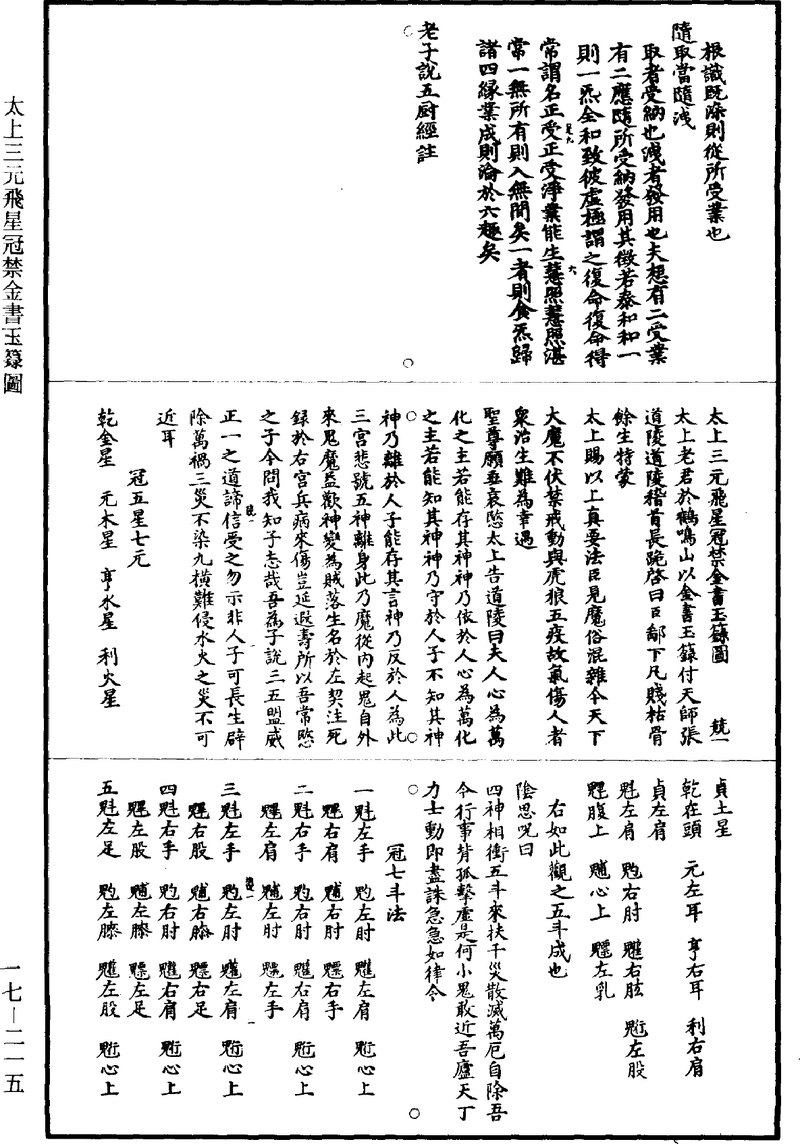 根識既除則從所受業也
隨取當隨洩
取者受納也洩者發用也夫想有二受業
有二應隨所受納發用其徵若泰和和一
則一炁全和致彼虛極謂之復命復命得
常謂名正受正受淨業能生慧照慧照湛
常一無所有則入無間矣一者則食炁歸
諸四緣業成則淪於六趣矣
老子說五廚經註
太上三元飛星冠禁金書玉籙圖 兢一
太上老君於鶴鳴山以金書玉籙付天師張
道陵道陵稽首長跪啓曰臣鄙下凡賤枯骨
餘生特蒙
太上賜以上真要法臣見魔俗混雜今天下
大魔不伏禁戒動與虎狼五疫故氣傷人者
衆治生難為幸遇
聖尊願垂哀愍太上告道陵曰夫人心為萬
化之主若能存其神神乃依於人心為萬化
之主若能知其神神乃守於人子不知其神
神乃離於人子能存其言神乃反於人為此
三宮悲號五神離身此乃魔從內起鬼自外
來鬼魔益歡神變為賊落生名於左契注死
録於右宮兵病來傷豈延遐壽所以吾常愍
之子今問我知子志哉吾為子說三五盟威
正一之道諦信受之勿示非人子可長生辟
除萬禍三災不染九橫難侵水火之災不可
近耳
冠五星七元
乾金星 元木星 亨水星 利火星
貞土星
乾在頭 元左耳 亨右耳 利右肩
貞左肩
魁左肩 𩲃右肘 䰢右胘 魓左股
魒腹上 䰠心上 魒左乳
右如此觀之五斗成也
陰思呪曰
四神相衝五斗來扶千災散滅萬厄自除吾
今行事背孤擊虛是何小鬼敢近吾廬天丁
力士動即盡誅急急如律令
冠七斗法
一魁左手 𩲃左肘 䰢左肩 魓心上
右肩 右肘 魒右手
二魁右手 𩲃右肘 䰢右肩 魓心上
左肩 左肘 魒左手
三魁左手 𩲃左肘 䰢左肩 魓心上
右股 右膝 魒右足
四魁右手 𩲃右肘 䰢右肩 魓心上
左股 左膝 魒左足
五魁左足 𩲃左膝 䰢左股 魓心上
太上三元飛星冠禁金書玉籙圖
一七—二一五